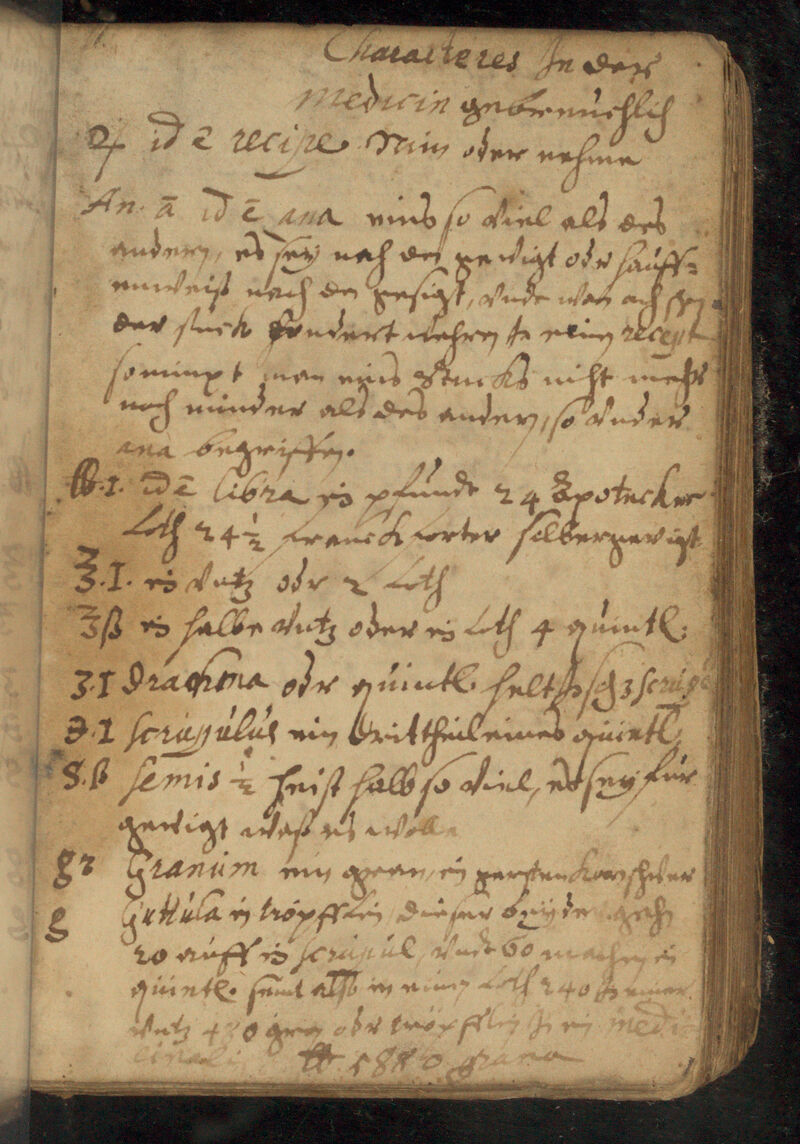 Characteres In der
medicin gebreuchlich
℞ id ē recipe Nim oder nehme
An. ā id ē ana eins so viel als des
andern, es sey nach dem gewigt odr hauff-
enweiß nach der gesigt, vnde wan auch
der stuck hundert wehren in einem recept
so nimpt man eins Stucks nicht mehr
noch minder als des andern, so vnder
ana begriffen.
℔.I. id ē libra ein pfundt 24 Apotecker
Loth 24½ franckforter silbergewigt
℥.I. ein vntz odr 2 Loth
℥ß ein halbe vntz oder ein Loth 4 quintl.
ʒ.I drachma odr quintl. helt 3 scrupl
℈.I scrupulus ein drittheil eines quintl
S.ß semis ½ heist halb so viel, es sey für
gewigt waß es wolle
gr Granum ein gran, ein gerstenkorn schwer
g Guttula ein tröpfflein, dieser beyder gehn
20 auff ein scrupul, vnde 60 machen ein
quintl. seint also in einem Loth 240 In einer
vntz 480 gran odr tröpfflein In ein medi-
cinali ℔ grana